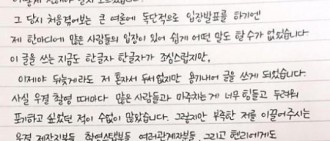 그 당시 처음겪어보는 큰 여론에 독단적으로 입장발표를 하기엔
제 한마디에 많은 사람들의 입장이 있어 쉽게 어떤 말도 할 수가 없었습니다
이 글을 쓰는 지금도 한글자 한글자가 조심스럽지만,
이제야 뒤늦게라도 저 혼자서 두서없지만 용기내어 글을 쓰게 되었습니다.
사실 우결 촬영 때마다 많은 사람들과 마주하는게 너무 힘들고 두려워
포기하고 싶었던 적이 수없이 많았습니다. 그렇지만 부족한 저를 이끌어주시는
우결 제작진분들, 촬영스텝분들, 여러관계자분들, 그리고